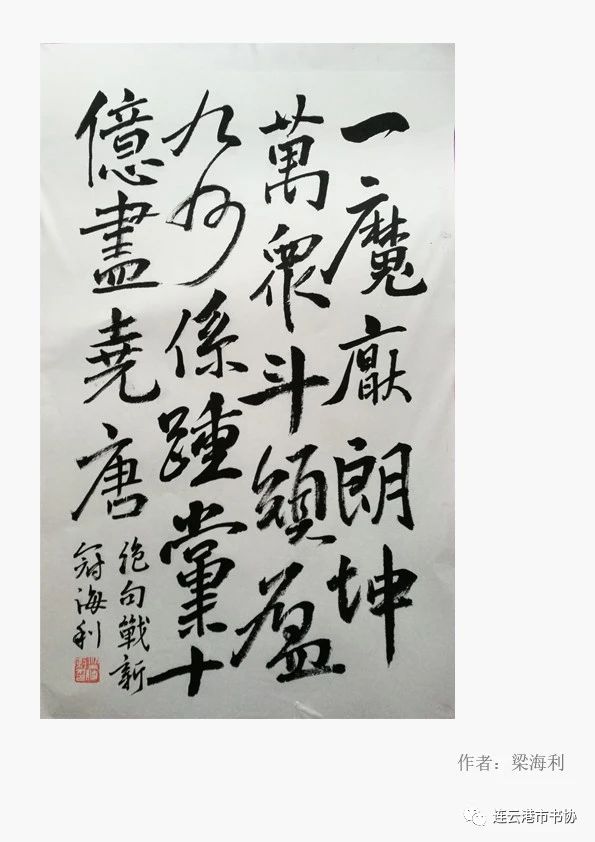 一魔厭朗坤
萬眾斗
九州係踵黨十
億盡堯唐
絕句戰新
冠海利
作者：梁海利
连云港市书协